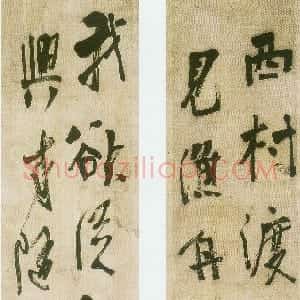 西村渡
見漁舟
我欲從
興隨
shufaziliao.com